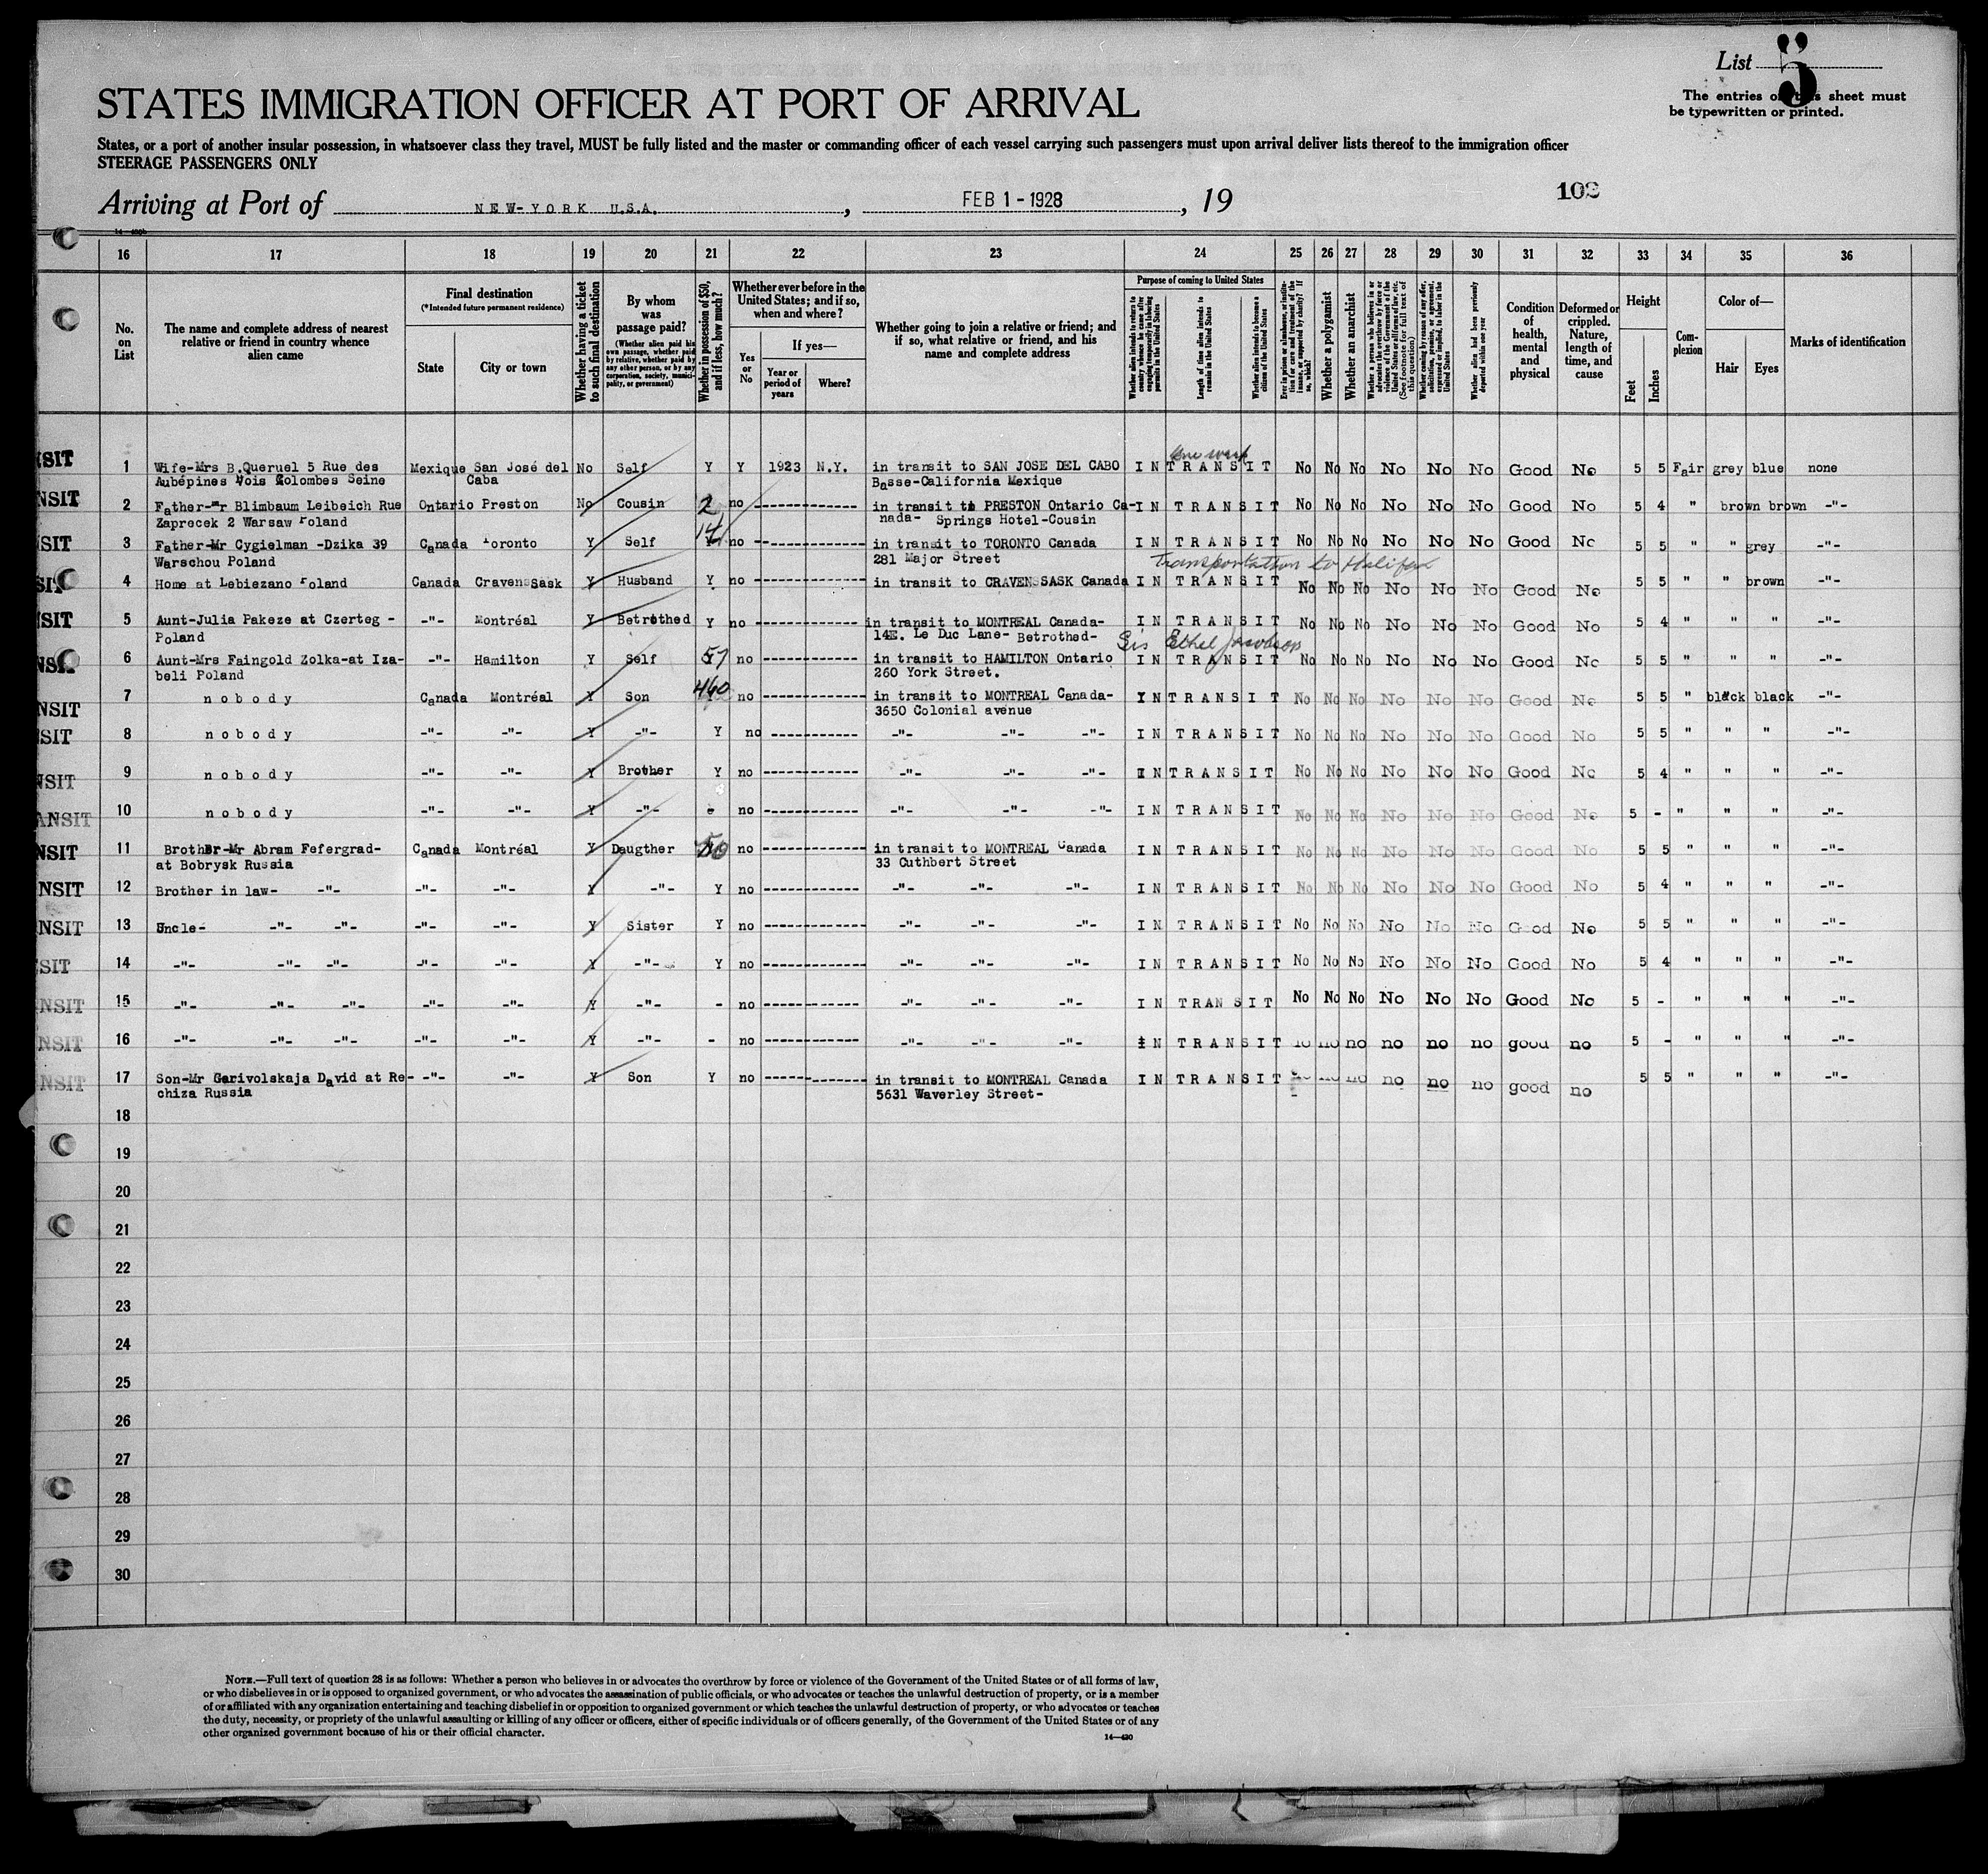 List 5
The entries on this sheet must
be typewritten or printed.
STATES IMMIGRATION OFFICER AT PORT OF ARRIVAL
States, or a port of another insular possession, in whatsoever class they travel, MUST be fully listed and the master or commanding officer of each vessel carrying such passengers must upon arrival deliver lists thereof to the immigration officer
STEERAGE PASSENGERS ONLY
Arriving at Port of NEW-YORK U.S.A. , FEB 1 - 1928 , 19
102
16 17 18 19 20 21 22 23 24 25 26 27 28 29 30 31 32 33 34 35 36
No. on List
The name and complete address of nearest relative or friend in country whence alien came
Final destination
(*Intended future permanent residence)
State
City or town
Whether having a ticket to such final destination
By whom was passage paid?
(Whether alien paid his own passage, whether paid by relative, whether paid by any other person, or by any corporation, society, municipality, or government)
Whether in possession of $50, and if less, how much?
Whether ever before in the United States; and if so, when and where?
Yes or No
If yes—
Year or period of years
Where?
Whether going to join a relative or friend; and if so, what relative or friend, and his name and complete address
Purpose of coming to United States
Whether alien intends to return to country whence he came after engaging temporarily in laboring pursuits in the United States
Length of time alien intends to remain in the United States
Whether alien intends to become a citizen of the United States
Ever in prison or almshouse, or institution for care and treatment of the insane, or supported by charity? If so, which?
Whether a polygamist
Whether an anarchist
Whether a person who believes in or advocates the overthrow by force or violence of the Government of the United States or all forms of law, etc. (See footnote for full text of this question)
Whether coming by reason of any offer, solicitation, promise, or agreement, expressed or implied, to labor in the United States
Whether alien had been previously deported within one year
Condition of health, mental and physical
Deformed or crippled. Nature, length of time, and cause
Height
Feet
Inches
Complexion
Color of—
Hair
Eyes
Marks of identification
one week
1 Wife-Mrs B.Queruel 5 Rue des Mexique San José del No Self Y Y 1923 N.Y. in transit to SAN JOSE DEL CABO IN TRANSIT No No No No No No Good No 5 5 Fair grey blue none
Aubépines Vois Colombes Seine Caba Basse-California Mexique
2 Father-Mr Blimbaum Leibeich Rue Ontario Preston No Cousin 2 no ------------- in transit to PRESTON Ontario Ca- IN TRANSIT No No No No No No Good No 5 4 " brown brown -"-
Zaprecek 2 Warsaw Poland nada- Springs Hotel-Cousin
3 Father-Mr Cygielman -Dzika 39 Canada Toronto Y Self 14 no ------------- in transit to TORONTO Canada IN TRANSIT No No No No No No Good No 5 5 " " grey -"-
Warschou Poland 281 Major Street
Transportation to Halifax
4 Home at Lebiezano Poland Canada Cravens Sask Y Husband Y no ------------- in transit to CRAVENSSASK Canada IN TRANSIT No No No No No No Good No 5 5 " " brown -"-
5 Aunt-Julia Pakeze at Czerteg - -"- Montréal Y Betrothed Y no ------------- in transit to MONTREAL Canada- IN TRANSIT No No No No No No Good No 5 4 " " " -"-
Poland 14E. Le Duc Lane- Betrothed-
Sis Ethel Jacobson
6 Aunt-Mrs Faingold Zolka-at Iza- -"- Hamilton Y Self 57 no ------------- in transit to HAMILTON Ontario IN TRANSIT No No No No No No Good No 5 5 " " " -"-
beli Poland 260 York Street.
7 nobody Canada Montréal Y Son 460 no ------------- in transit to MONTREAL Canada- IN TRANSIT No No No No No No Good No 5 5 " black black -"-
3650 Colonial avenue
8 nobody -"- -"- Y -"- Y no ------------- -"- -"- -"- IN TRANSIT No No No No No No Good No 5 5 " " " -"-
9 nobody -"- -"- Y Brother Y no ------------- -"- -"- -"- IN TRANSIT No No No No No No Good No 5 4 " " " -"-
10 nobody -"- -"- Y -"- - no ------------- -"- -"- -"- IN TRANSIT No No No No No No Good No 5 - " " " -"-
11 Brother-Mr Abram Fefergrad- Canada Montréal Y Daugther 50 no ------------- in transit to MONTREAL Canada IN TRANSIT No No No No No No Good No 5 5 " " " -"-
at Bobrysk Russia 33 Cuthbert Street
12 Brother in law- -"- -"- -"- Y -"- Y no ------------- -"- -"- -"- IN TRANSIT No No No No No No Good No 5 4 " " " -"-
13 Uncle- -"- -"- -"- -"- Y Sister Y no ------------- -"- -"- -"- IN TRANSIT No No No No No No Good No 5 5 " " " -"-
14 -"- -"- -"- -"- -"- Y -"- Y no ------------- -"- -"- -"- IN TRANSIT No No No No No No Good No 5 4 " " " -"-
15 -"- -"- -"- -"- -"- Y -"- - no ------------- -"- -"- -"- IN TRANSIT No No No No No No Good No 5 - " " " -"-
16 -"- -"- -"- -"- -"- Y -"- - no ------------- -"- -"- -"- IN TRANSIT no no no no no no good no 5 - " " " -"-
17 Son-Mr Garivolskaja David at Re- -"- -"- Y Son Y no ------------- in transit to MONTREAL Canada IN TRANSIT no no no no no no good no 5 5 " " " -"-
chiza Russia 5631 Waverley Street-
18
19
20
21
22
23
24
25
26
27
28
29
30
NOTE.—Full text of question 28 is as follows: Whether a person who believes in or advocates the overthrow by force or violence of the Government of the United States or of all forms of law,
or who disbelieves in or is opposed to organized government, or who advocates the assassination of public officials, or who advocates or teaches the unlawful destruction of property, or is a member
of or affiliated with any organization entertaining and teaching disbelief in or opposition to organized government or which teaches the unlawful destruction of property, or who advocates or teaches
the duty, necessity, or propriety of the unlawful assaulting or killing of any officer or officers, either of specific individuals or of officers generally, of the Government of the United States or of any
other organized government because of his or their official character.
14—430